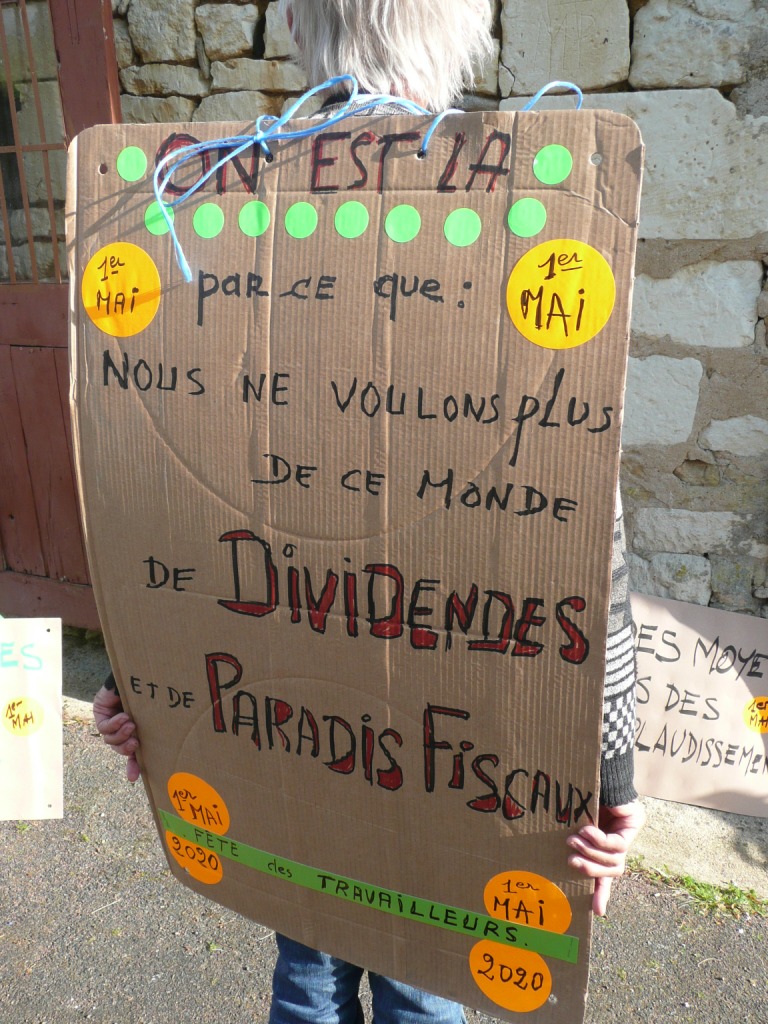 ON EST LÀ
1er
MAI
par ce que :
1er
MAI
NOUS NE VOULONS plus
DE CE MONDE
DE DiViDENDES
ET DE PARADiS FiSCAUX
1er MAI
2020
FÊTE des TRAVAiLLEURS.
1er
MAI
2020
ES
1er
MAI
ES MOYE
S DES
LAUDISSEMEN
1er
MAI